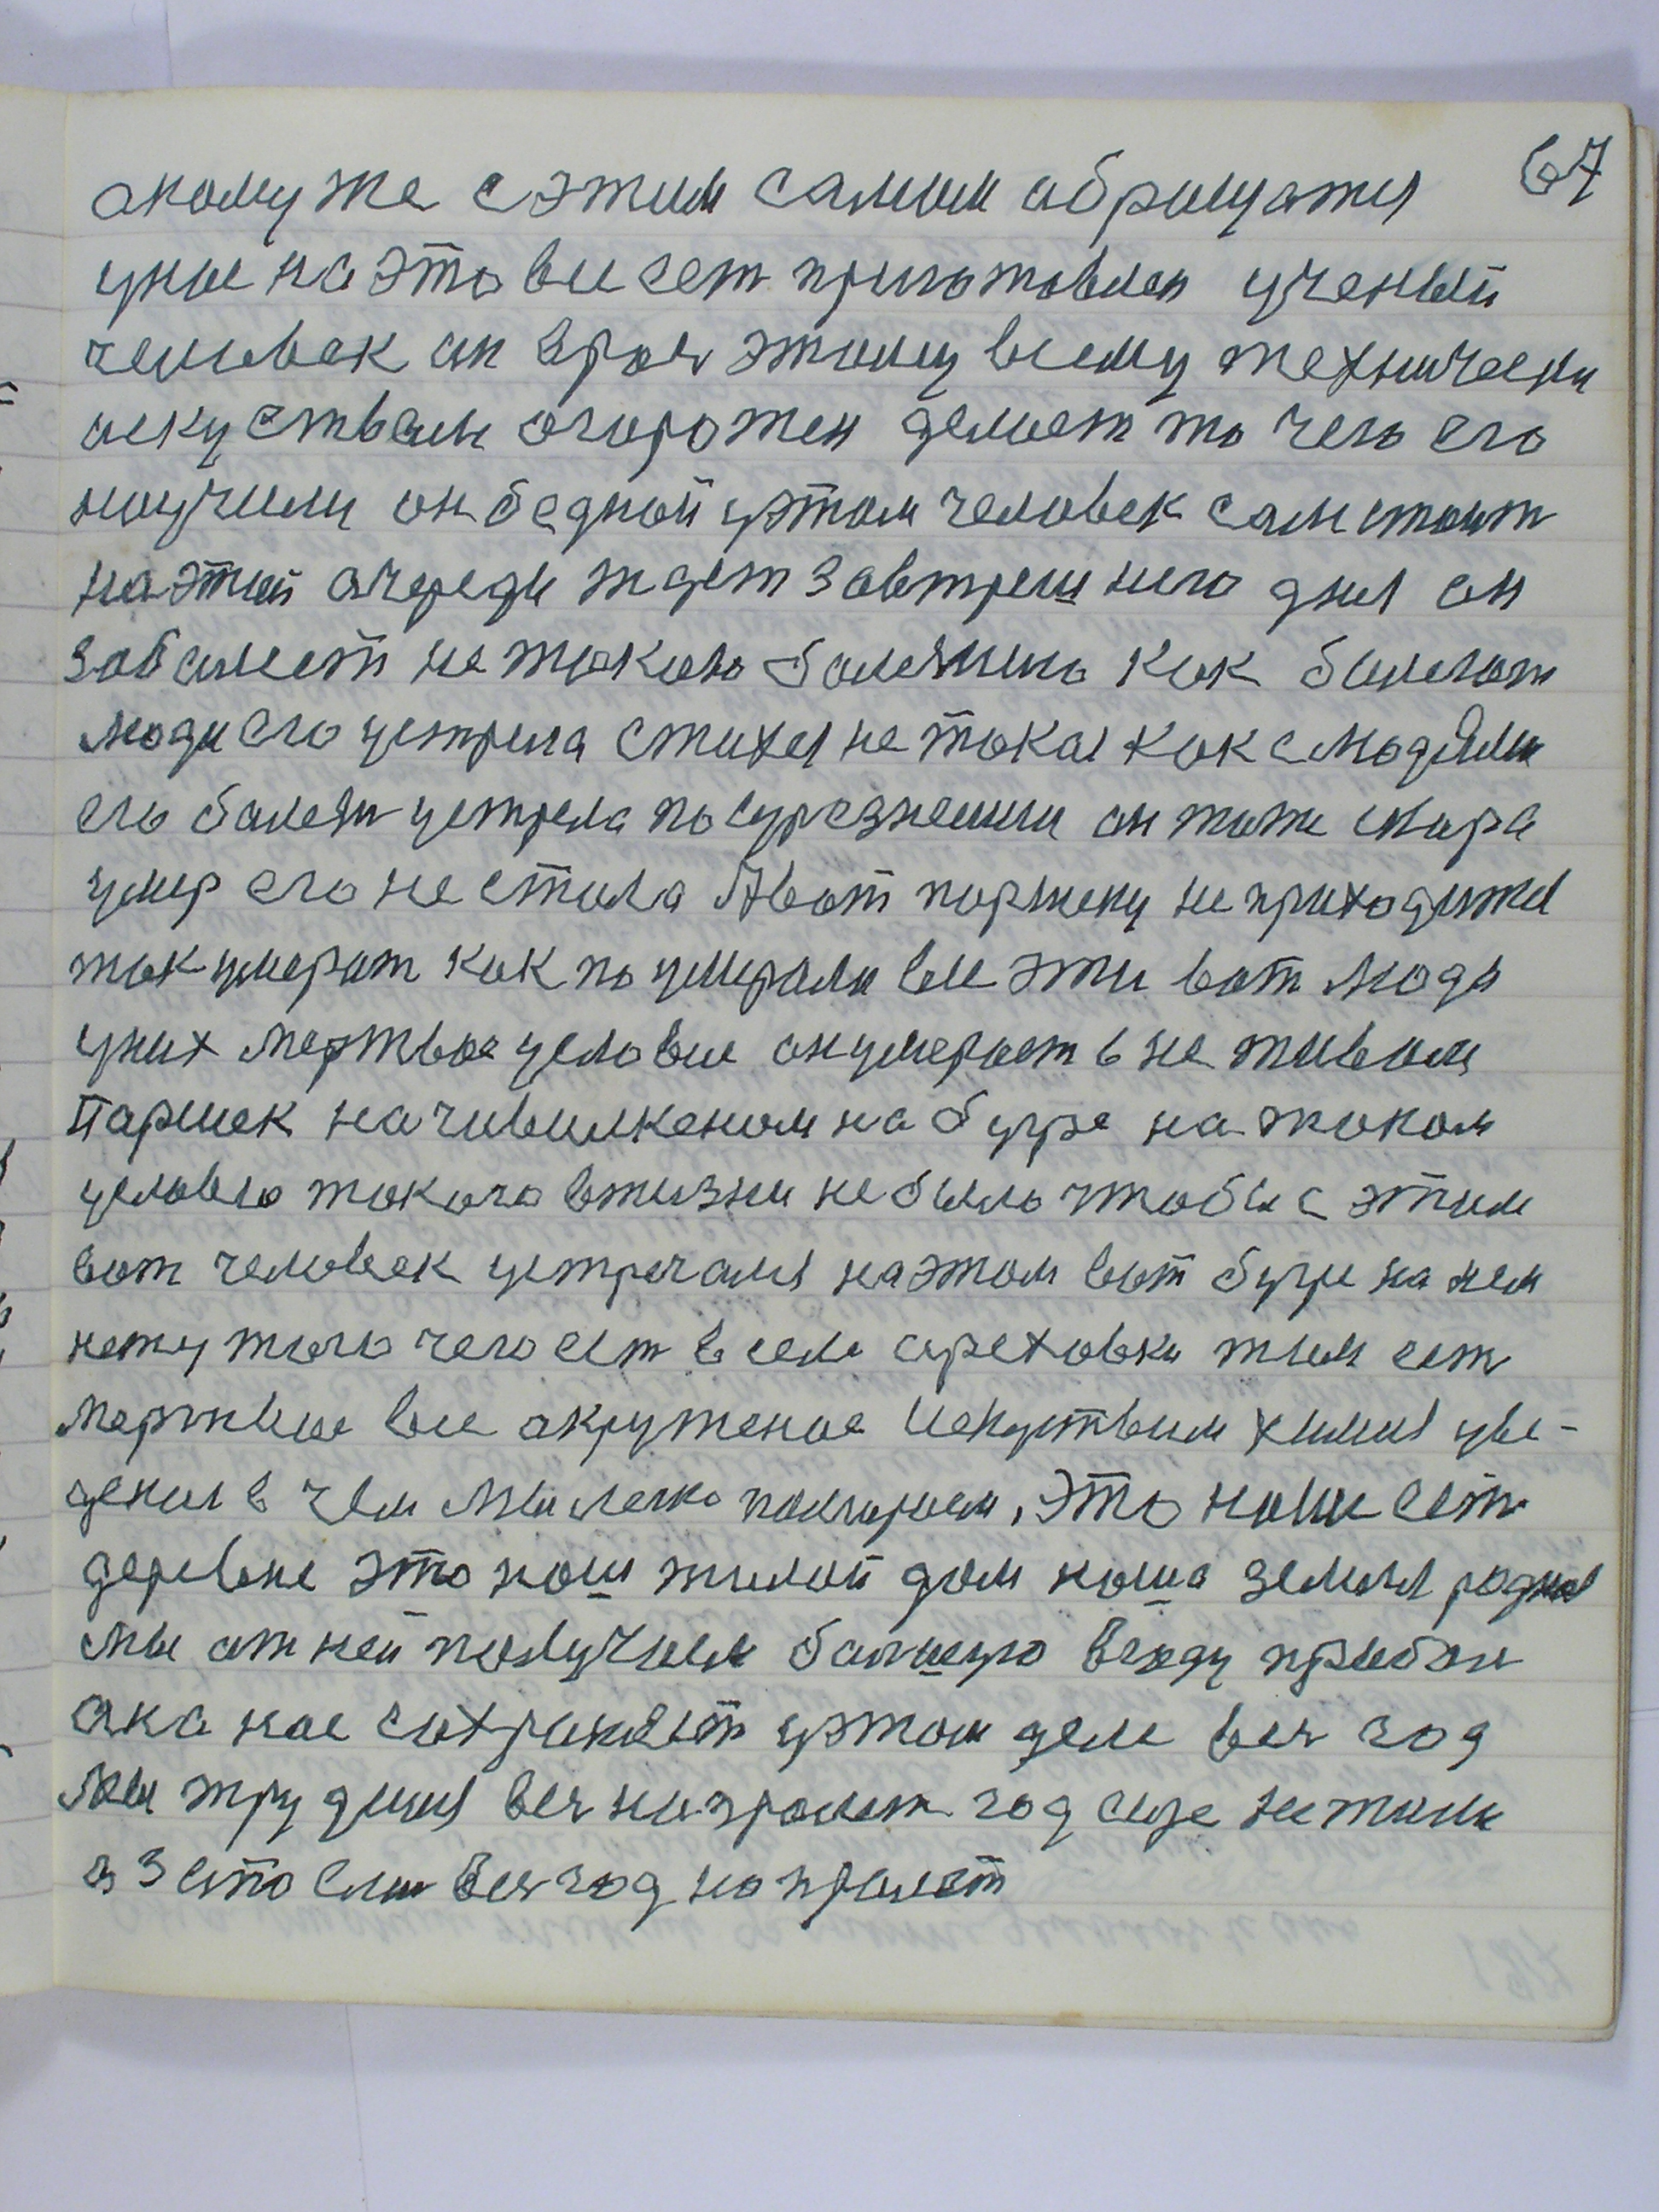 67
акому же с этим самим абращатся
унас на это все ест приготовлен ученый
человек он врач этому всему технически
искуством огорожен делает то чего его
научили он бедной уэтом человек сам стоит
на этой очереди ждет завтрешнего дня он
заболеет не такою болезнию как болеют
люди его устрела стихея не такая как с людями
его болезн устрела посурезнешии он тоже скора
умер его не стало А вот паршеку не приходится
так умерат как поумерали все эти вот люди
уних мертвое условие он умерает в не живом
Паршек на чивилкеном на бугре на таком
условею такога в жизни небыло чтобы с этим
вот человек устречался на этом вот бугре на нем
нету того чего ест в селе ореховки там ест
мертвые все окружение Искуством химия уве-
дения в чем мы легко поиграем, это наше ест
деревне это наш жилой дом наша земля родная
мы от ней получаем балшую вгоду прибол
ана нас сахраняет уэтом деле вес год
мы трудимся вес напролет год еще не жили
из ето ели вес год на пролет